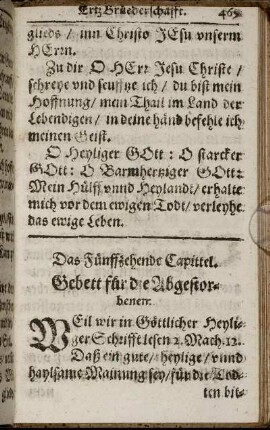 Ertz Bruederschafft. 465
glieds / inn Christo JEsu vnserm
HErrn.
Zu dir O HErr Jesu Christe /
schreye vnd seufftze ich / du bist mein
Hoffnung / mein Thail im Land der
Lebendigen / in deine händ befehle ich
meinen Geist.
O Heyliger GOtt : O starcker
GOtt : O Barmhertziger GOtt :
Mein Hülff vnnd Heylandt / erhalte
mich vor dem ewigen Todt / verleyhe
das ewige Leben.
Das Fünffzehende Capittel.
Gebett für die Abgestor-
benen.
WEil wir in Göttlicher Heyli-
ger Schrifft lesen 2. Mach. 12.
Daß ein gute / heylige / vnnd
haylsame Mainung sey / für die Tod-
ten bit-